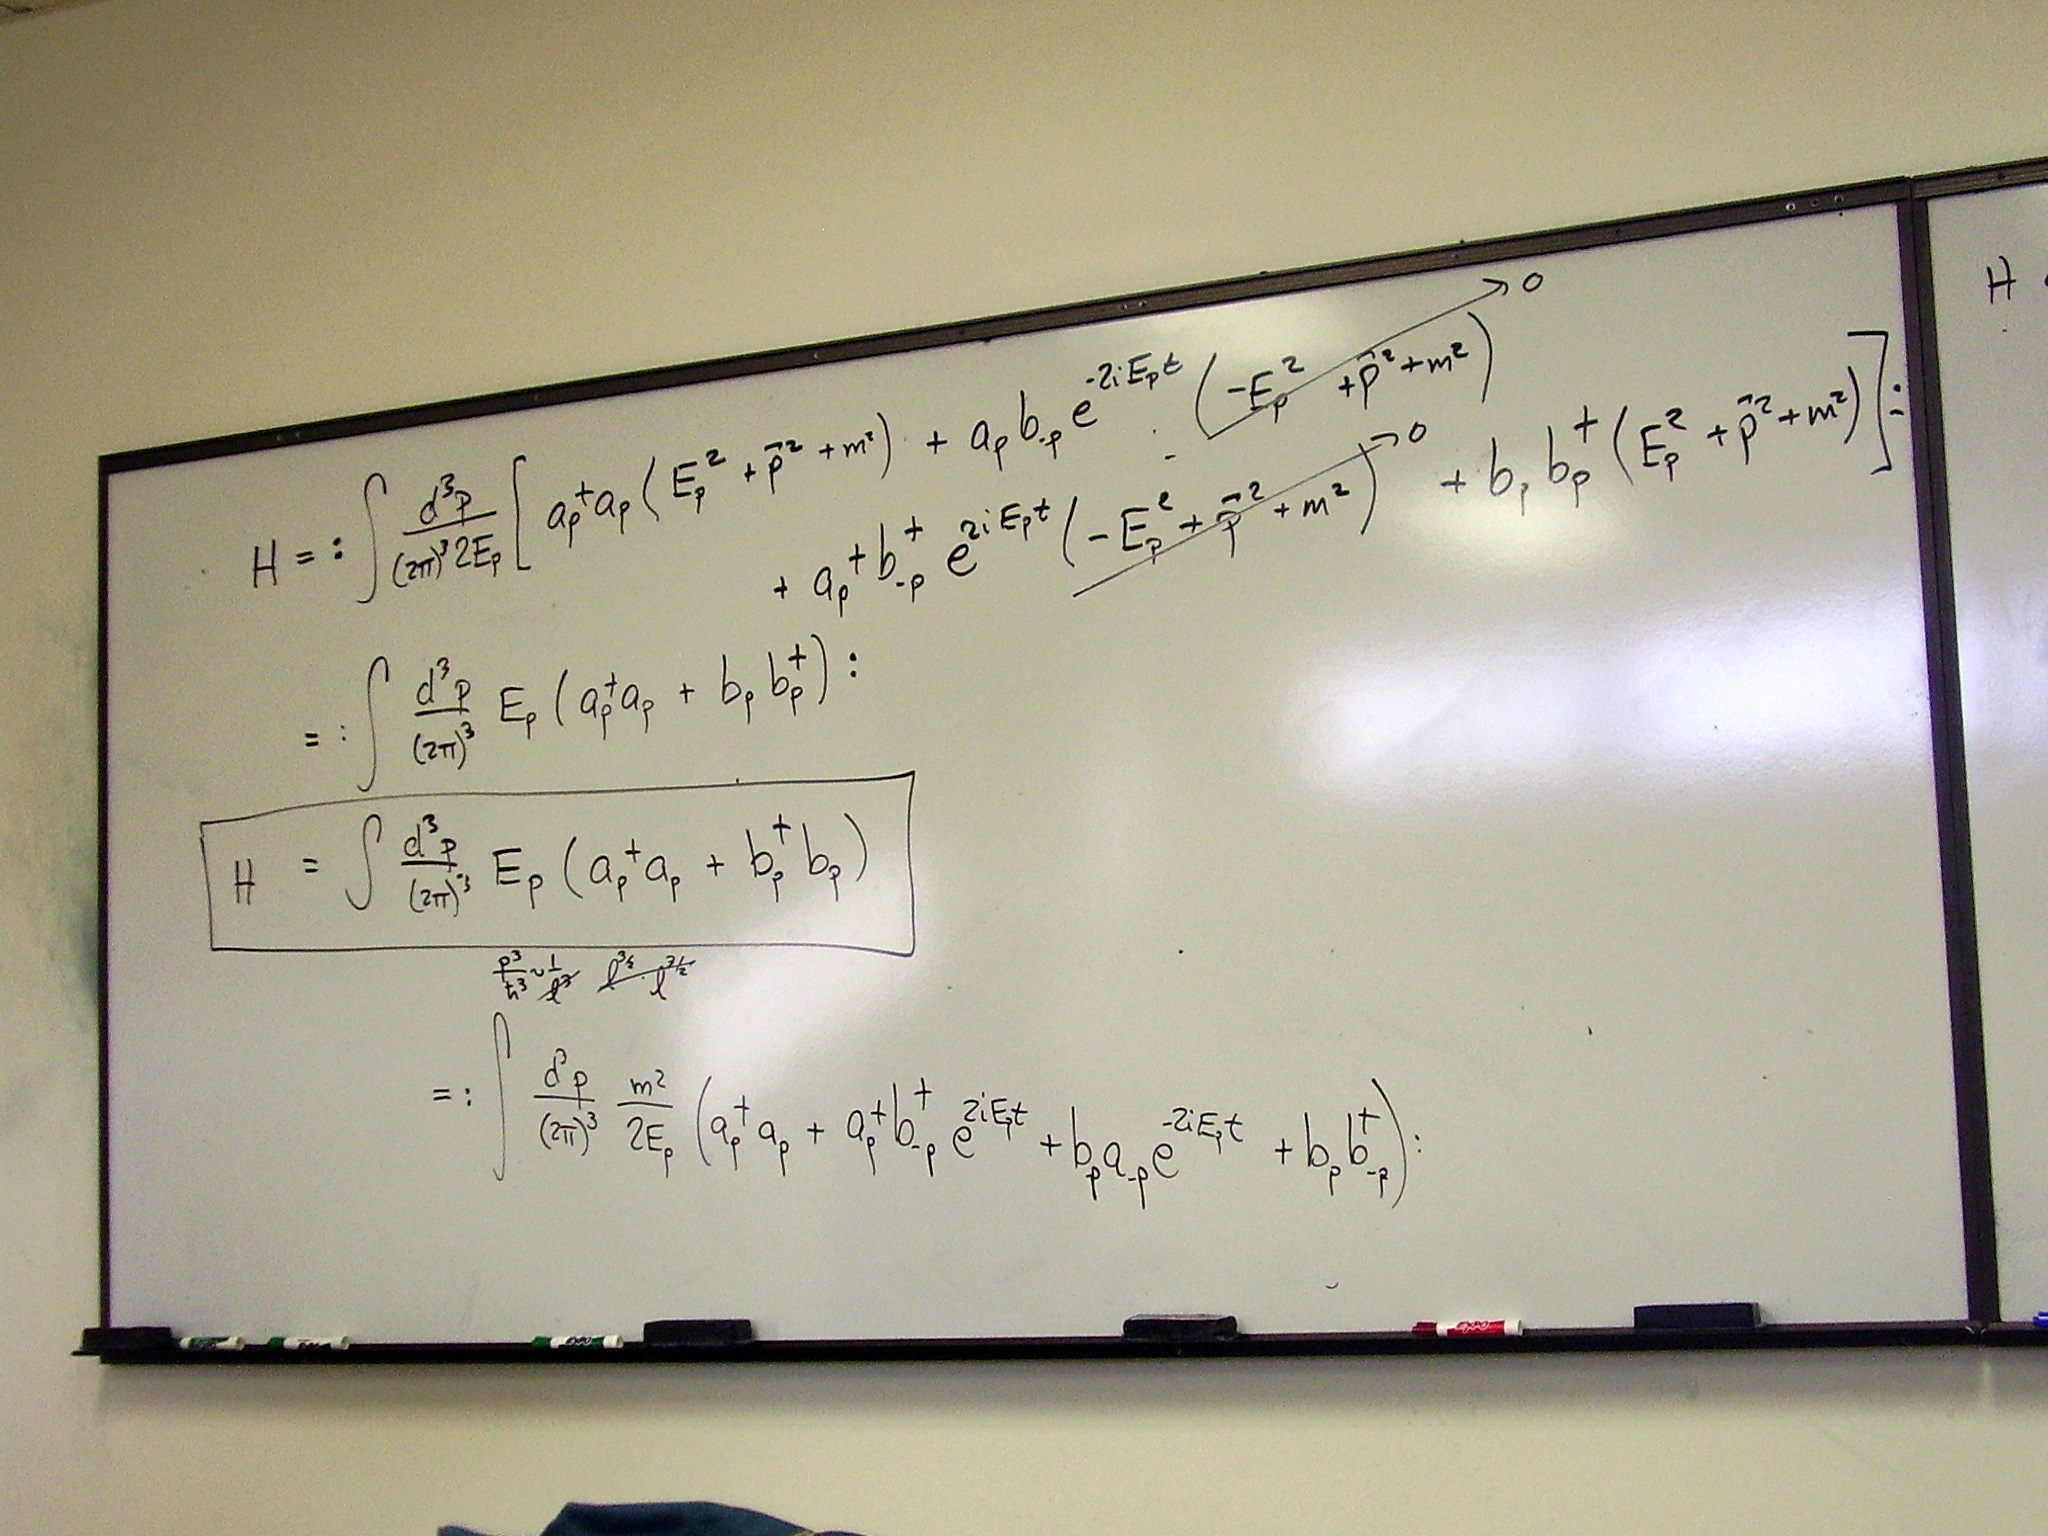 H = : ∫ d³p/((2π)³ 2E_p) [ a_p† a_p ( E_p² + p⃗² + m² ) + a_p b_-p e^(-2iE_p t) ( -E_p² + p⃗² + m² ) → 0
+ a_p† b_-p† e^(2iE_p t) ( -E_p² + p⃗² + m² ) → 0 + b_p b_p† ( E_p² + p⃗² + m² ) ] :
= : ∫ d³p/(2π)³ E_p ( a_p† a_p + b_p b_p† ) :
H = ∫ d³p/(2π)³ E_p ( a_p† a_p + b_p† b_p )
p³/ħ³ ~ 1/l³ l^(3/2) · l^(3/2)
= : ∫ d³p/(2π)³ m²/(2E_p) ( a_p† a_p + a_p† b_-p† e^(2iE_p t) + b_p a_-p e^(-2iE_p t) + b_p b_-p† ) :
H